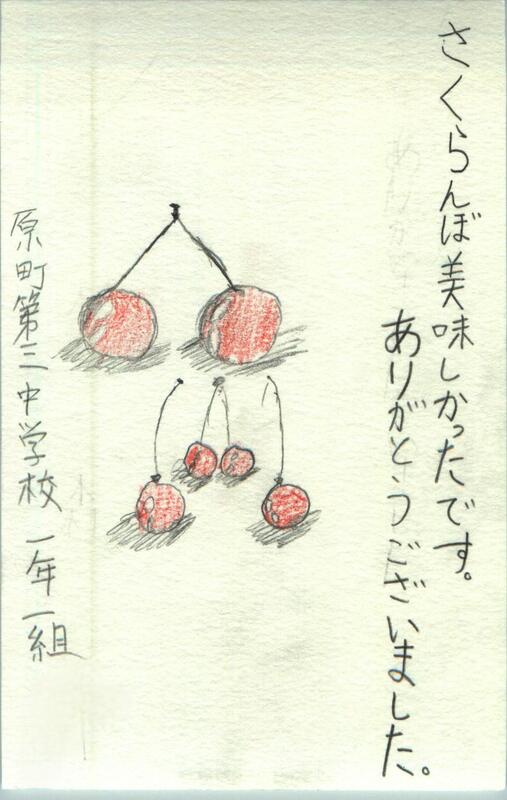 さくらんぼ美味しかったです。
ありがとうございました。
原町第三中学校一年一組